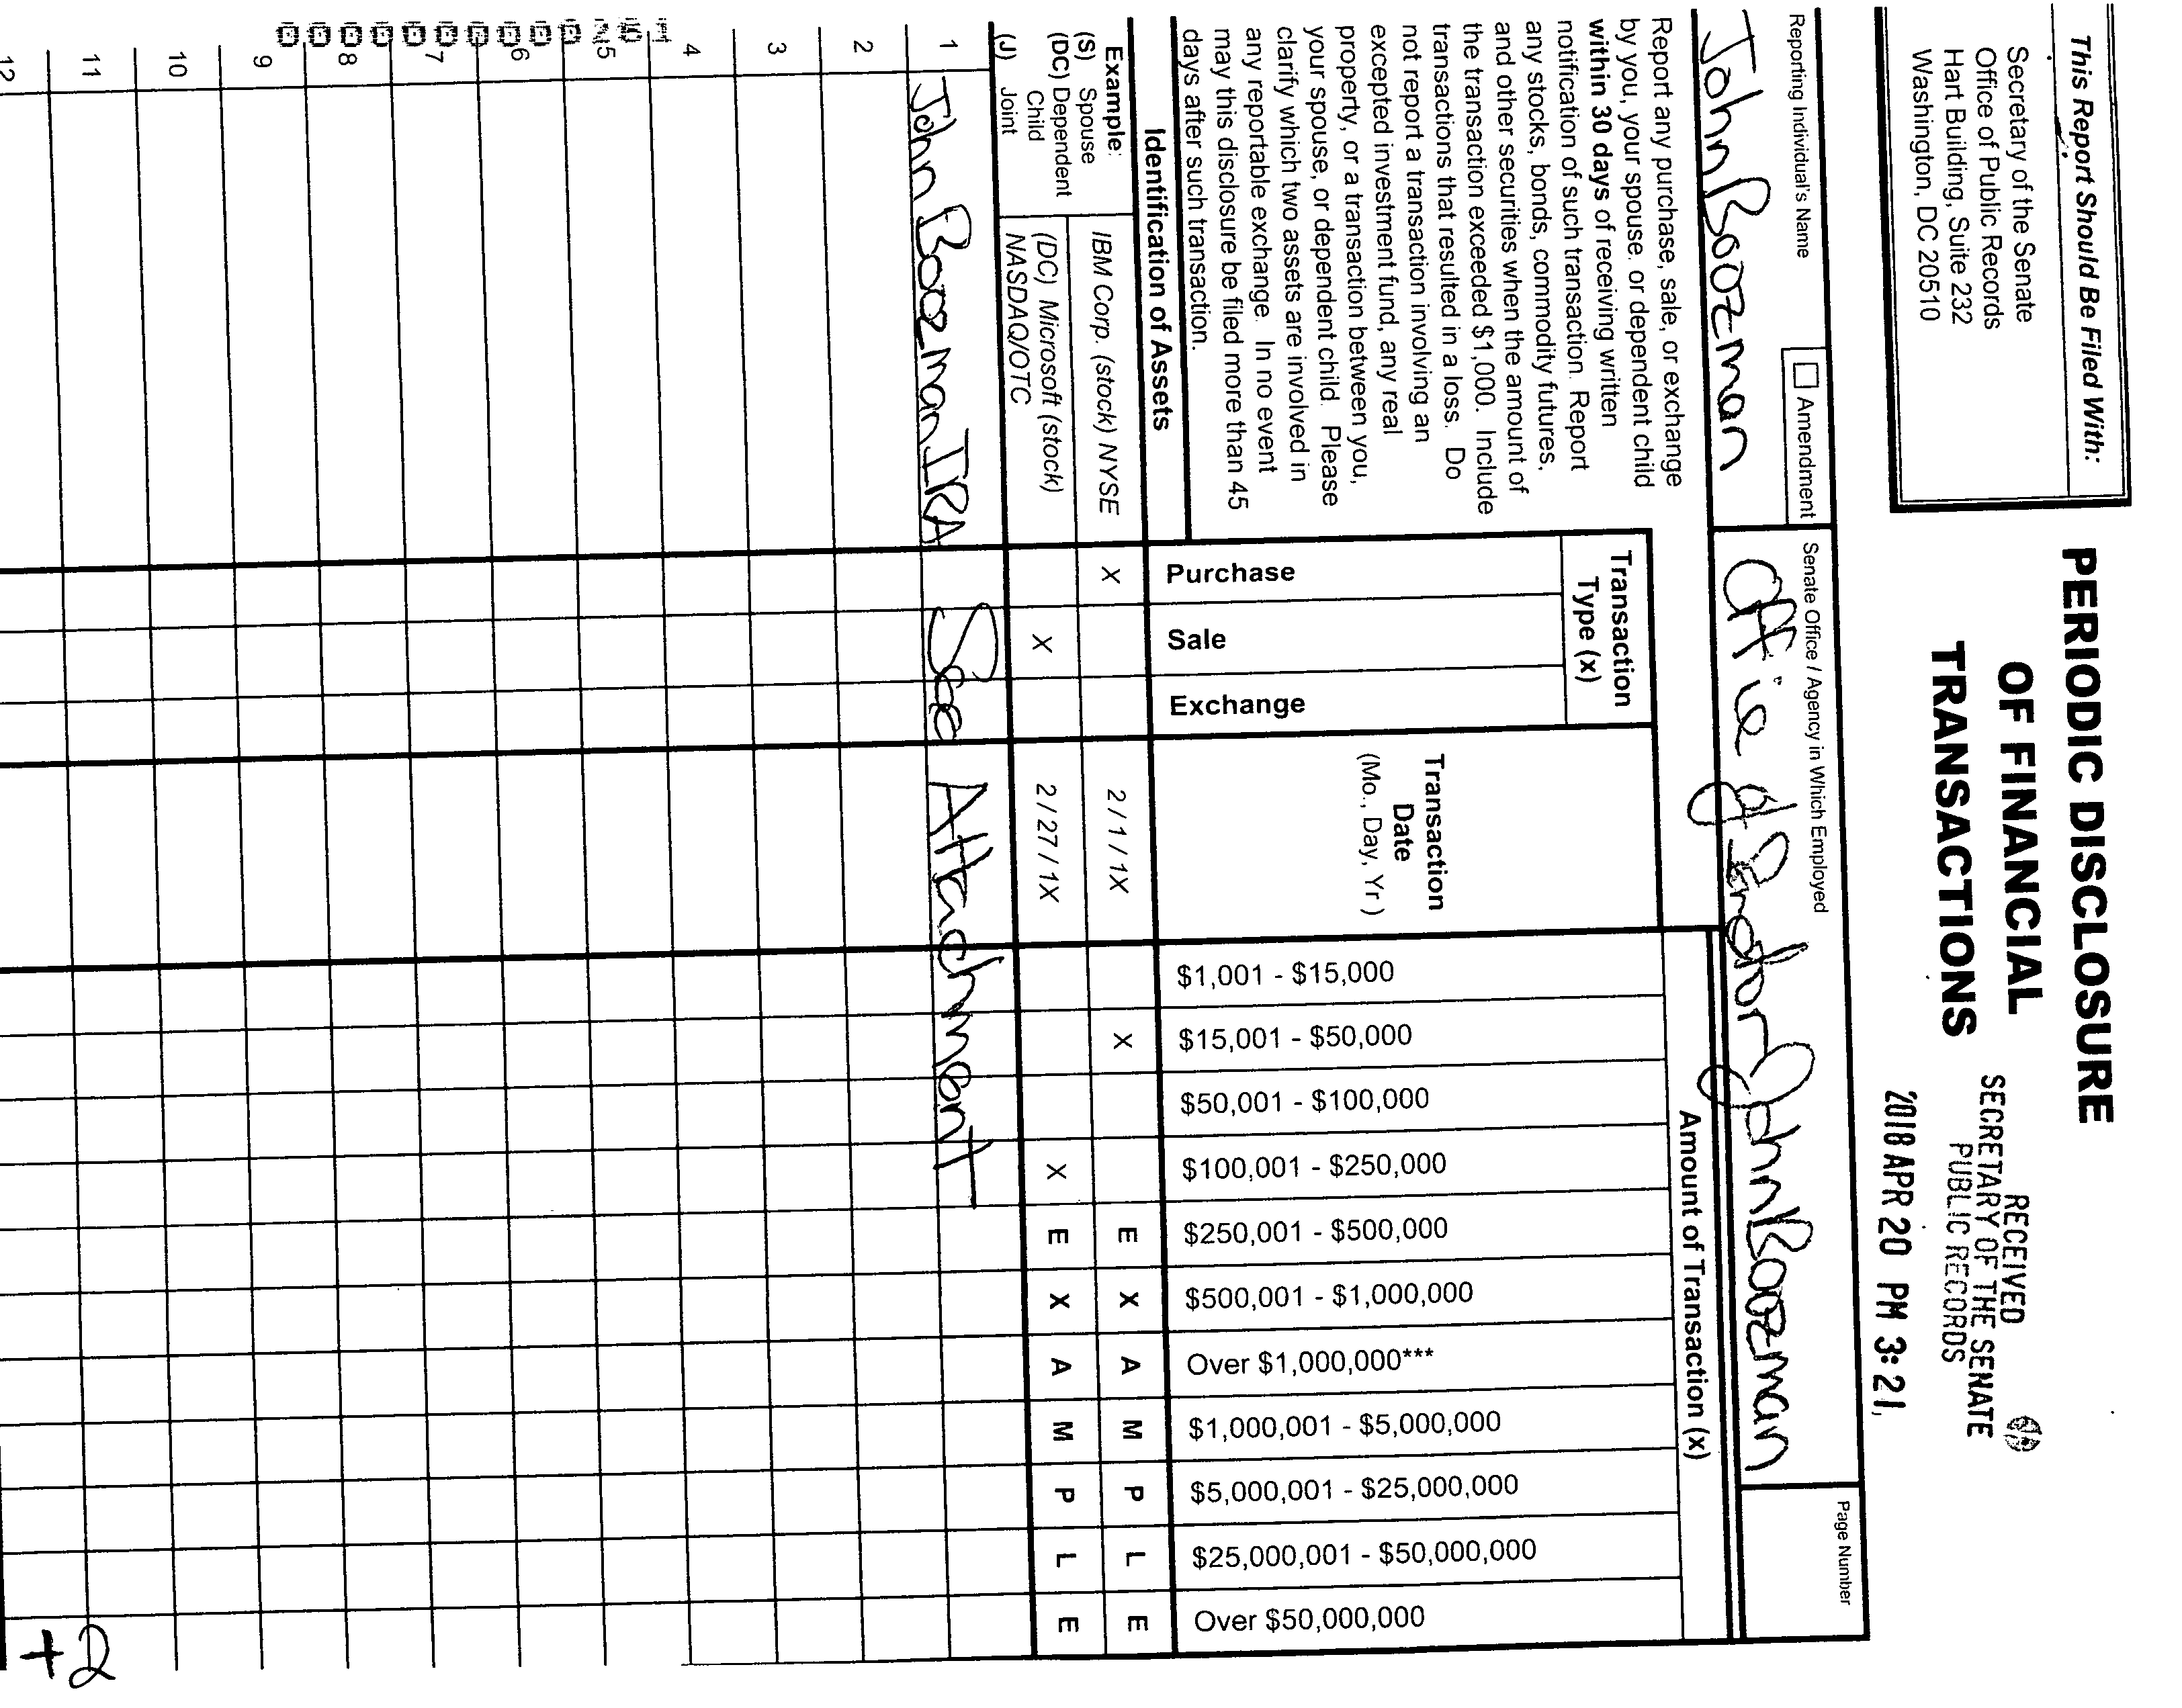 This Report Should Be Filed With:
Secretary of the Senate
Office of Public Records
Hart Building, Suite 232
Washington, DC 20510
PERIODIC DISCLOSURE
OF FINANCIAL
TRANSACTIONS
RECEIVED
SECRETARY OF THE SENATE
PUBLIC RECORDS
2018 APR 20 PM 3:21
Reporting Individual's Name
John Boozman
Amendment
Senate Office / Agency in Which Employed
Office of Senator John Boozman
Page Number
Report any purchase, sale, or exchange
by you, your spouse, or dependent child
within 30 days of receiving written
notification of such transaction. Report
any stocks, bonds, commodity futures,
and other securities when the amount of
the transaction exceeded $1,000. Include
transactions that resulted in a loss. Do
not report a transaction involving an
excepted investment fund, any real
property, or a transaction between you,
your spouse, or dependent child. Please
clarify which two assets are involved in
any reportable exchange. In no event
may this disclosure be filed more than 45
days after such transaction.
Transaction
Type (x)
Amount of Transaction (x)
Identification of Assets
Purchase
Sale
Exchange
Transaction
Date
(Mo., Day, Yr )
$1,001 - $15,000
$15,001 - $50,000
$50,001 - $100,000
$100,001 - $250,000
$250,001 - $500,000
$500,001 - $1,000,000
Over $1,000,000***
$1,000,001 - $5,000,000
$5,000,001 - $25,000,000
$25,000,001 - $50,000,000
Over $50,000,000
Example:
(S) Spouse
(DC) Dependent
Child
(J) Joint
IBM Corp. (stock) NYSE X 2 / 1 / 1X X E X A M P L E
(DC) Microsoft (stock)
NASDAQ/OTC X 2 / 27 / 1X X E X A M P L E
1 John Boozman IRA See Attachment
2
3
4
5
6
7
8
9
10
11
12
+2